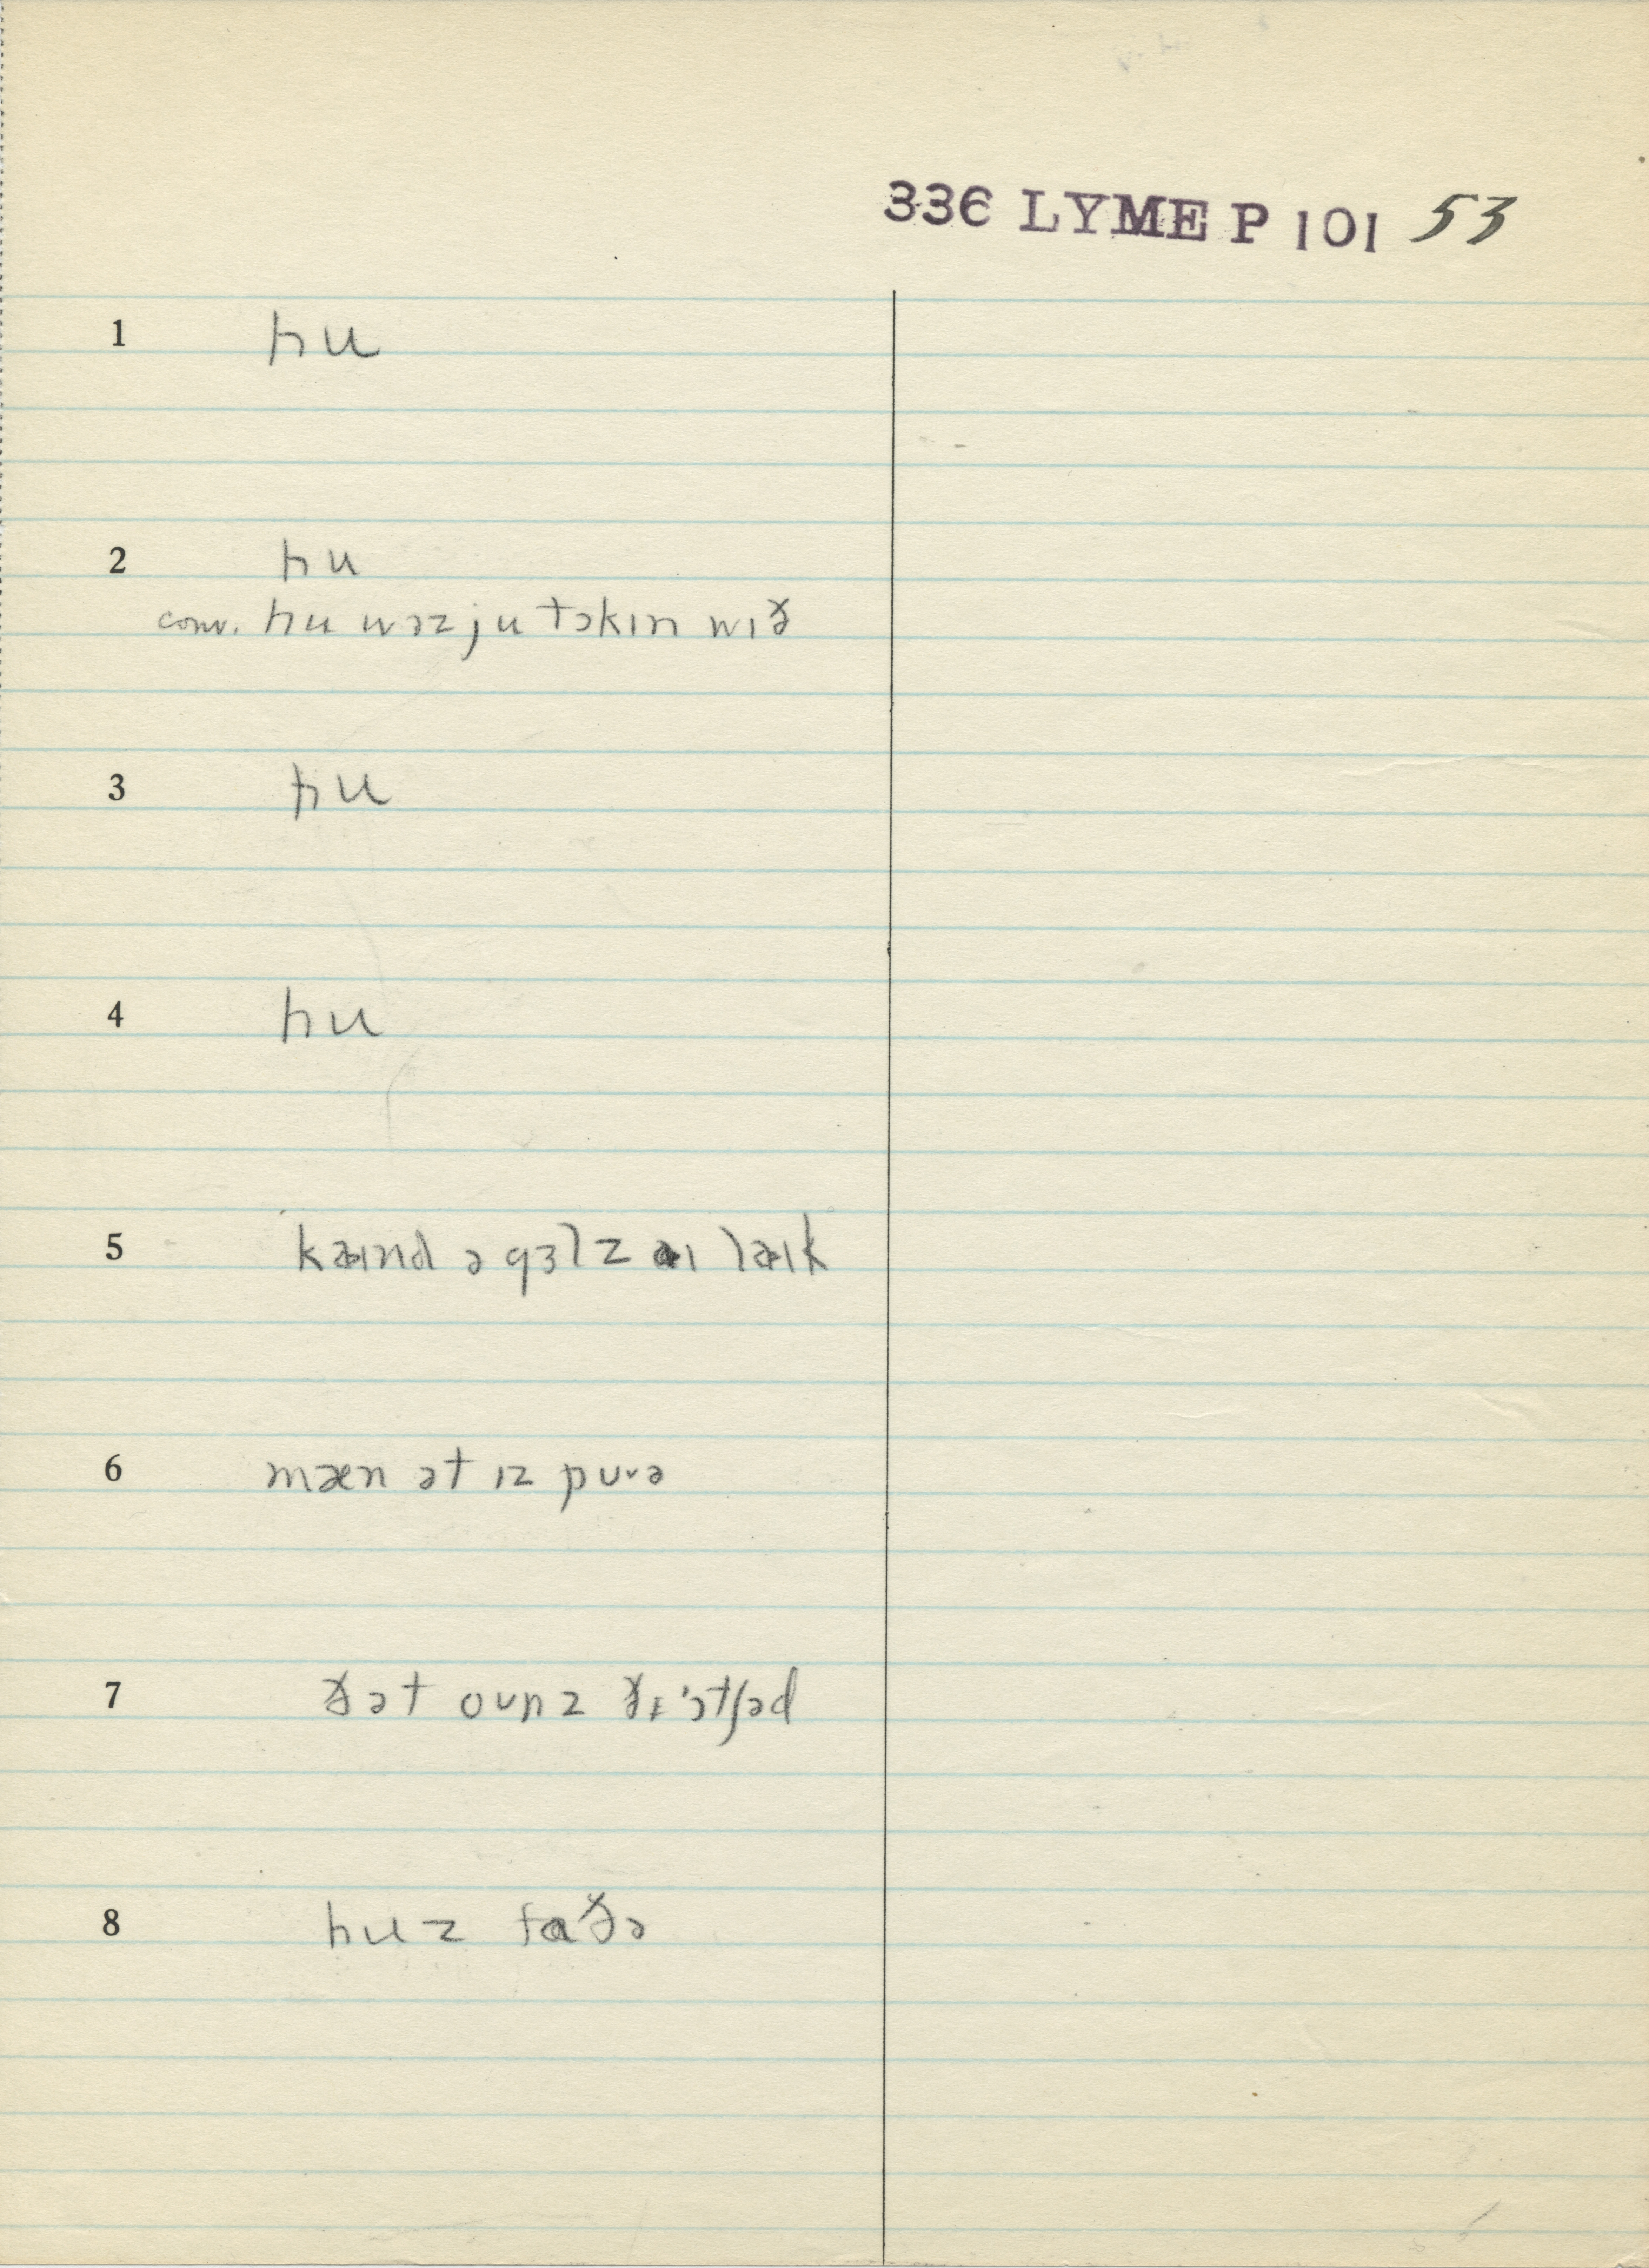 336 LYME P 101 53
1 hu
2 hu
conv. hu wəz ju tɔkɪn wɪð
3 hu
4 hu
5 kaɪnd ə gɜlz aɪ laɪk
6 mæn ət ɪz pʊvə
7 ðət oʊnz ðɪ ˈɔtʃəd
8 huz faðə